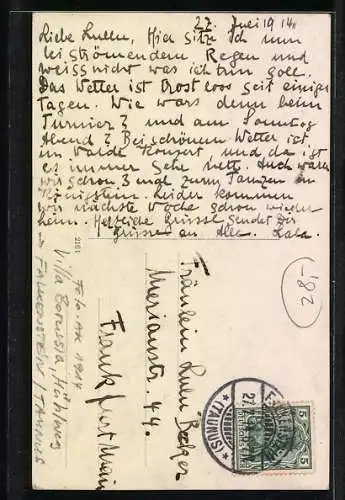 27. Juni 1914.
Liebe Lullu, Hier sitz ich nun
bei strömendem Regen und
weiss nicht was ich tun soll.
Das Wetter ist trostloos seit einigen
Tagen. Wie wars denn beim
Turnier? und am Sonntag
Abend? Bei schönem Wetter ist
im Walde Konzert, und da ist
es immer sehr nett. Auch waren
wir schon 3 mal zum Tanzen in
Königstein. Leider kommen
wir nächste Woche schon wieder
heim. Herzliche Grüsse sendet Dir
Grüsse an Alle.
Fräulein Lulu
Merianstr. 44.
Frankfurt Main
2161
Foto-AK 1914
Villa Borussia, Hühlweg
in FALKENSTEIN / TAUNUS
-82
(TAUNUS)
27.
5
5